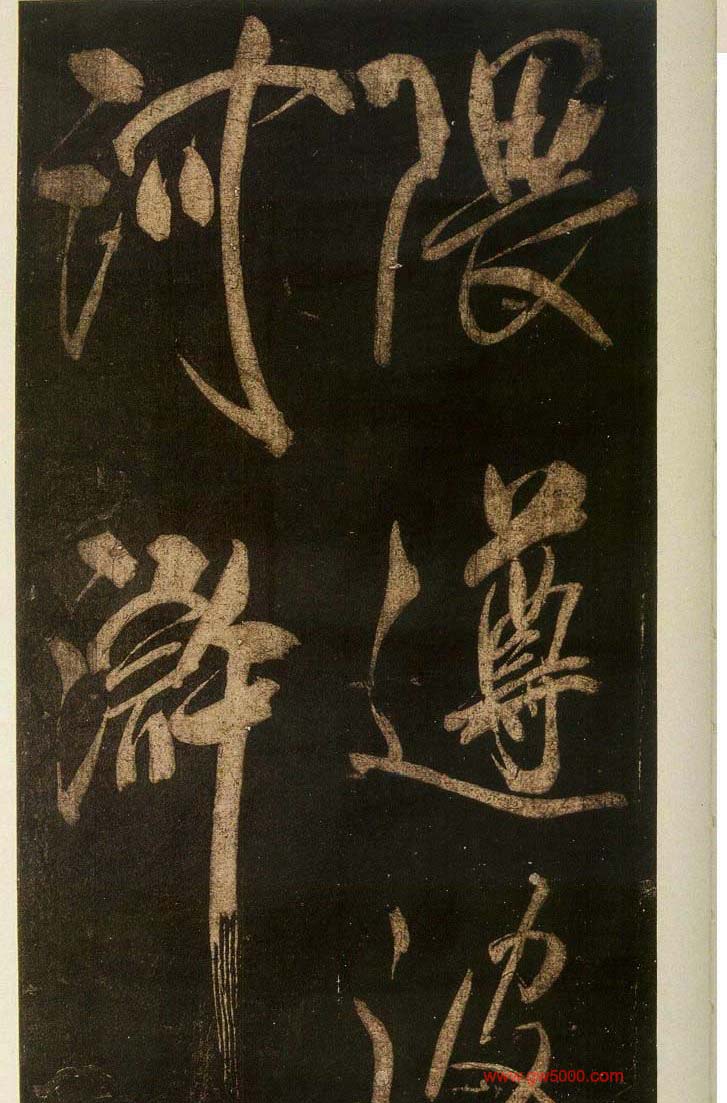 隈遵彼
河滸
www.gw5000.com